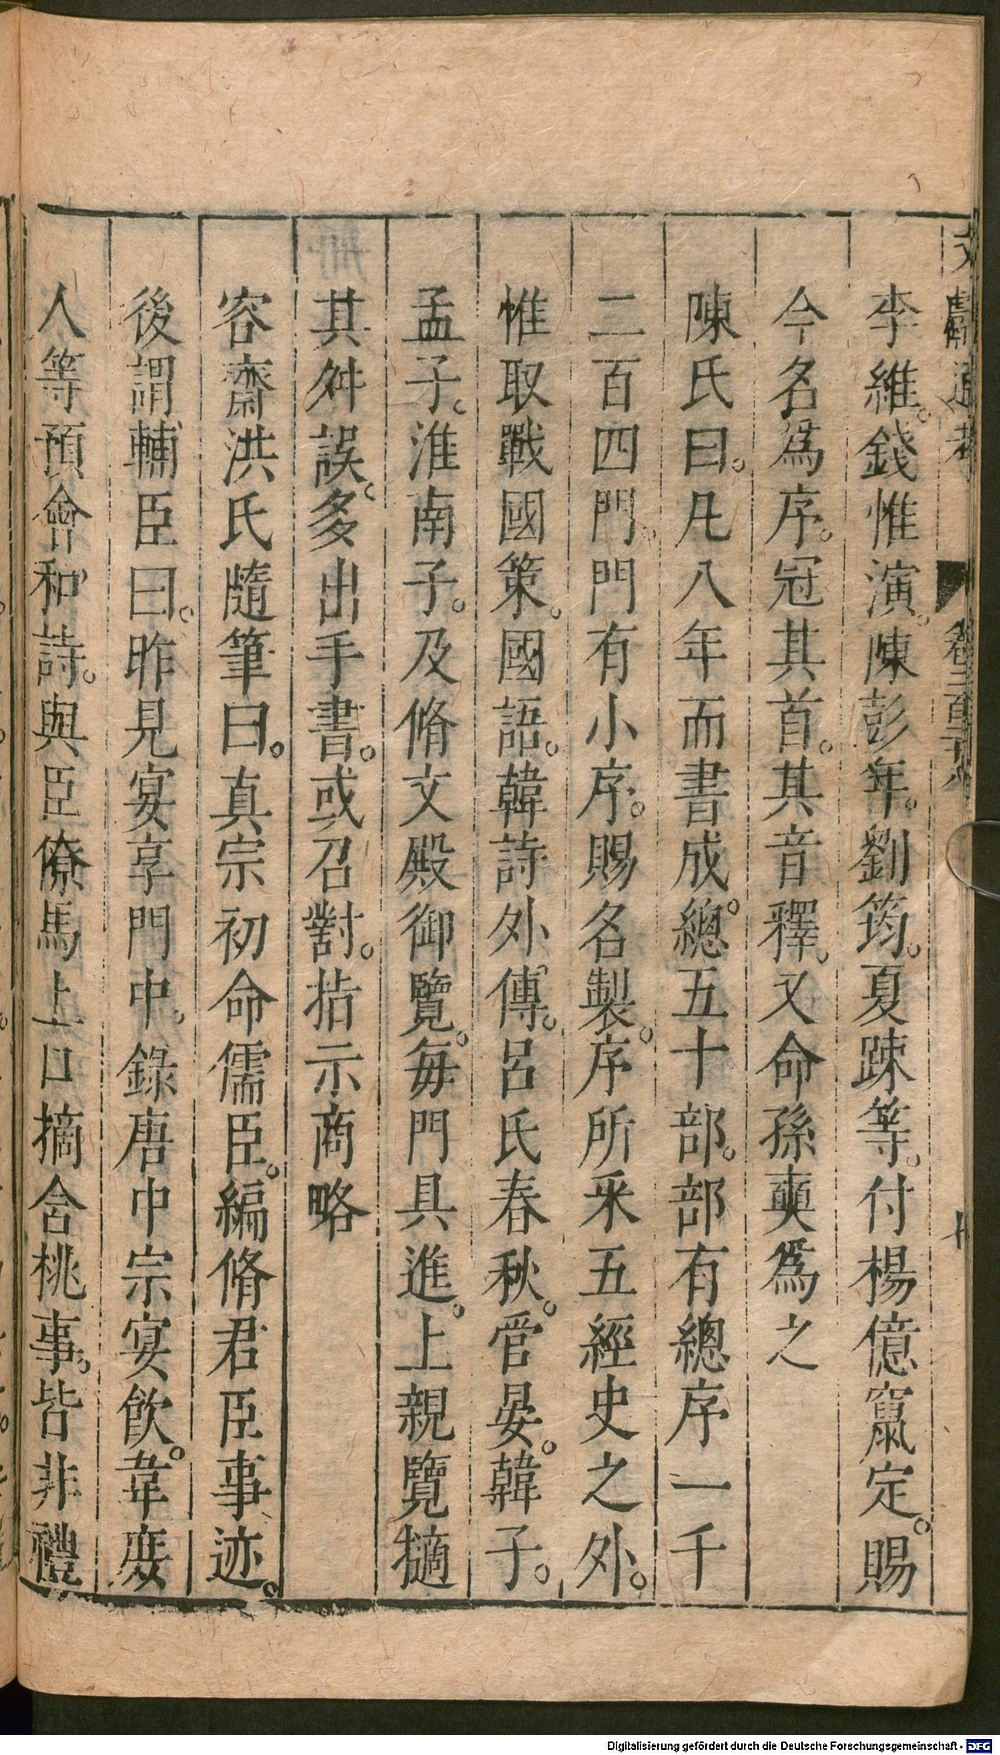 李維。錢惟演。陳彭年。劉筠。夏竦等。付楊億竄定。賜
今名爲序。冠其首。其音釋。又命孫奭爲之
陳氏曰。凡八年而書成。總五十部。部有總序一千
二百四門。門有小序。賜名製。序所采五經史之外。
惟取戰國策。國語。韓詩外傳。呂氏春秋。管晏。韓子。
孟子。淮南子。及脩文殿御覽。每門具進。上親覽擿
其舛誤。多出手書。或召對。指示商略
容齋洪氏隨筆曰。真宗初命儒臣。編脩君臣事迹。
後謂輔臣曰。昨見宴享門中。錄唐中宗宴飲。韋庶
人等預會。和詩。與臣僚馬上口摘含桃事。皆非禮
Digitalisierung gefördert durch die Deutsche Forschungsgemeinschaft - DFG